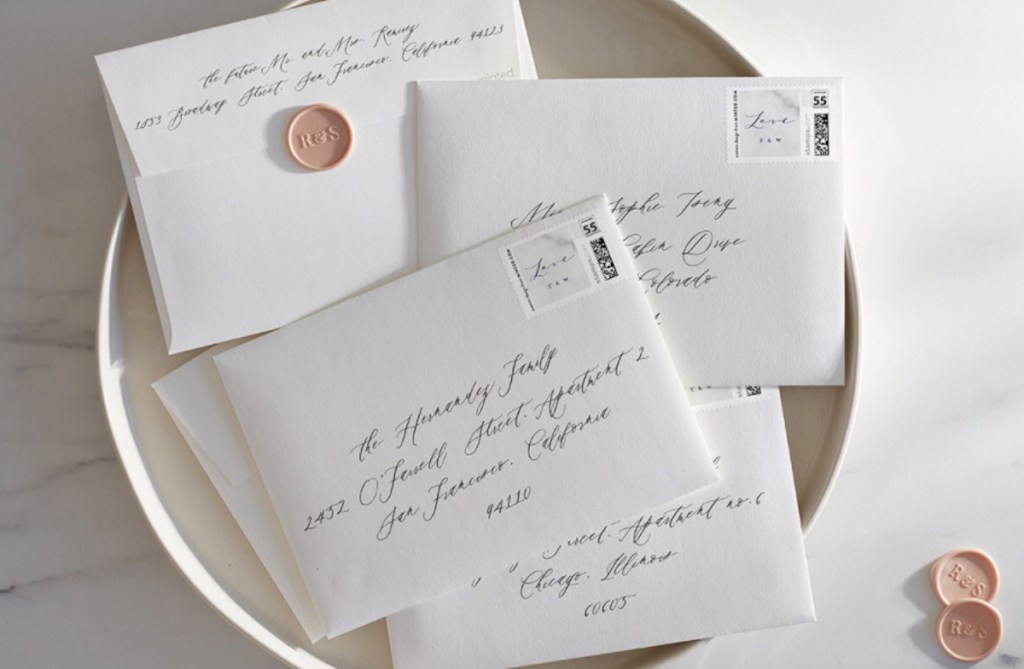 the future Mr. and Mrs. Ramsey
1853 Broadway Street. San Francisco. California 94123
R&S
Love
T & W
stamps.com
55
Sophie Tseng
Drive
Colorado
Love
T & W
stamps.com
55
the Hernandez Family
2452 O'Farrell Street. Apartment 2
San Francisco. California
94110
Apartment no. 6
Chicago. Illinois
60605
R&S
R&S